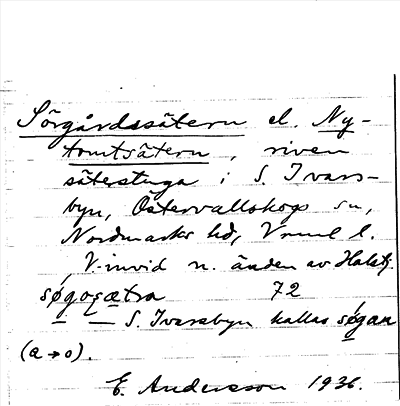 Sörgårdssätern el. Ny-
tomtsätern, riven
säterstuga i S. Ivars-
byn, Östervallskogs sn,
Nordmarks hd, Vrml l.
V. invid n. änden av Halstj.
søgogætra 72
S. Ivarsbyn kallas søgan
(a → o).
E. Andersson 1936.